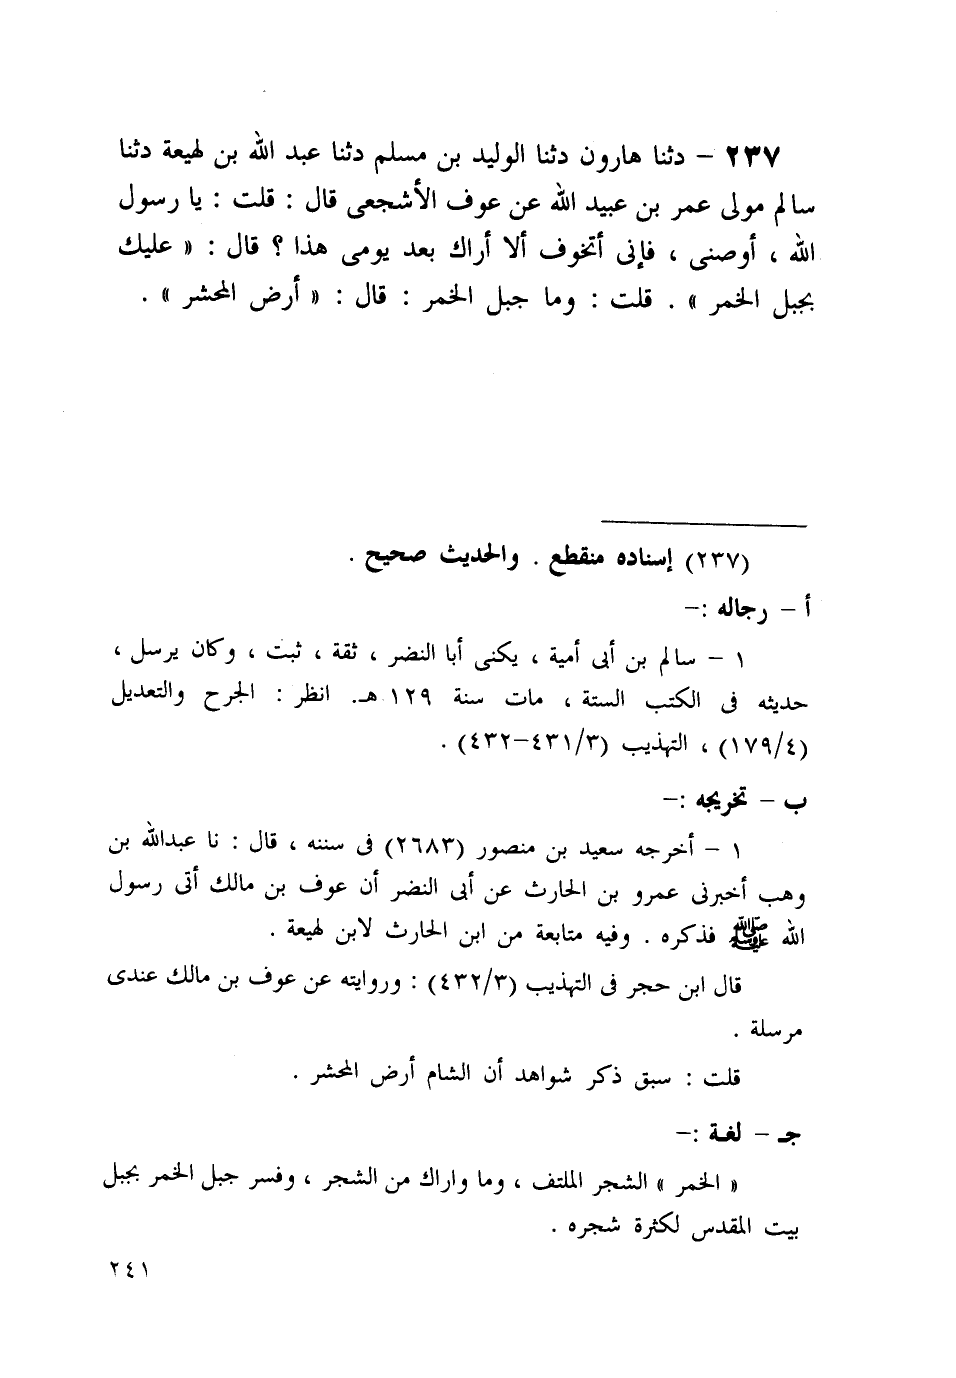 ٢٣٧ – دثنا هارون دثنا الوليد بن مسلم دثنا عبد الله بن لهيعة دثنا
سالم مولى عمر بن عبيد الله عن عوف الأشجعى قال : قلت : يا رسول
الله ، أوصنى ، فإنى أتخوف ألا أراك بعد يومى هذا ؟ قال : « عليك
بجبل الخمر » . قلت : وما جبل الخمر : قال : « أرض المحشر » .
(٢٣٧) إسناده منقطع . والحديث صحيح .
أ – رجاله :–
١ – سالم بن أبى أمية ، يكنى أبا النضر ، ثقة ، ثبت ، وكان يرسل ،
حديثه فى الكتب الستة ، مات سنة ١٢٩ هـ. انظر : الجرح والتعديل
(١٧٩/٤) ، التهذيب (٤٣١/٣–٤٣٢) .
ب – تخريجه :–
١ – أخرجه سعيد بن منصور (٢٦٨٣) فى سننه ، قال : نا عبدالله بن
وهب أخبرنى عمرو بن الحارث عن أبى النضر أن عوف بن مالك أتى رسول
الله ﷺ فذكره . وفيه متابعة من ابن الحارث لابن لهيعة .
قال ابن حجر فى التهذيب (٤٣٢/٣) : وروايته عن عوف بن مالك عندى
مرسلة .
قلت : سبق ذكر شواهد أن الشام أرض المحشر .
جـ – لغة :–
« الخمر » الشجر الملتف ، وما واراك من الشجر ، وفسر جبل الخمر بجبل
بيت المقدس لكثرة شجره .
٢٤١